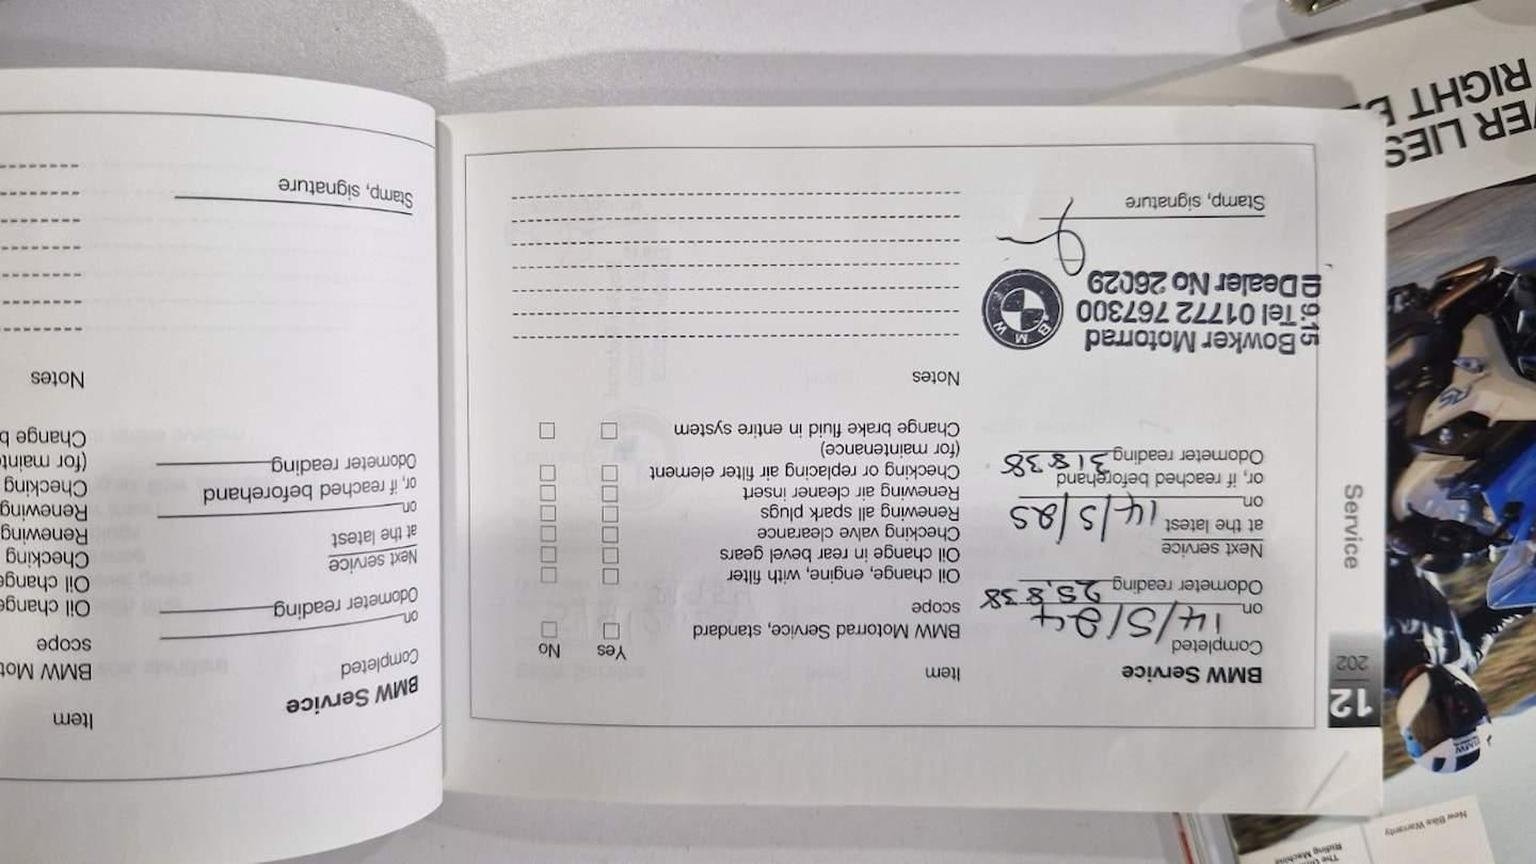 12
202
Service
BMW Service
Completed
on 14/5/24
Odometer reading 25,838
Next service
at the latest
on 14/5/25
or, if reached beforehand
Odometer reading 31838
Bowker Motorrad
Tel 01772 767300
Dealer No 26029
9.15
BMW
Stamp, signature
Item
Yes No
BMW Motorrad Service, standard
scope
Oil change, engine, with filter
Oil change in rear bevel gears
Checking valve clearance
Renewing all spark plugs
Renewing air cleaner insert
Checking or replacing air filter element
(for maintenance)
Change brake fluid in entire system
Notes
BMW Service
Completed
on
Odometer reading
Next service
at the latest
on
or, if reached beforehand
Odometer reading
Stamp, signature
Item
BMW Mot
scope
Oil change
Oil change
Checking
Renewing
Renewing
Checking
(for mainte
Change b
Notes
VER LIES
RIGHT BE
RS
BMW
New Bike Warranty
Riding Machine